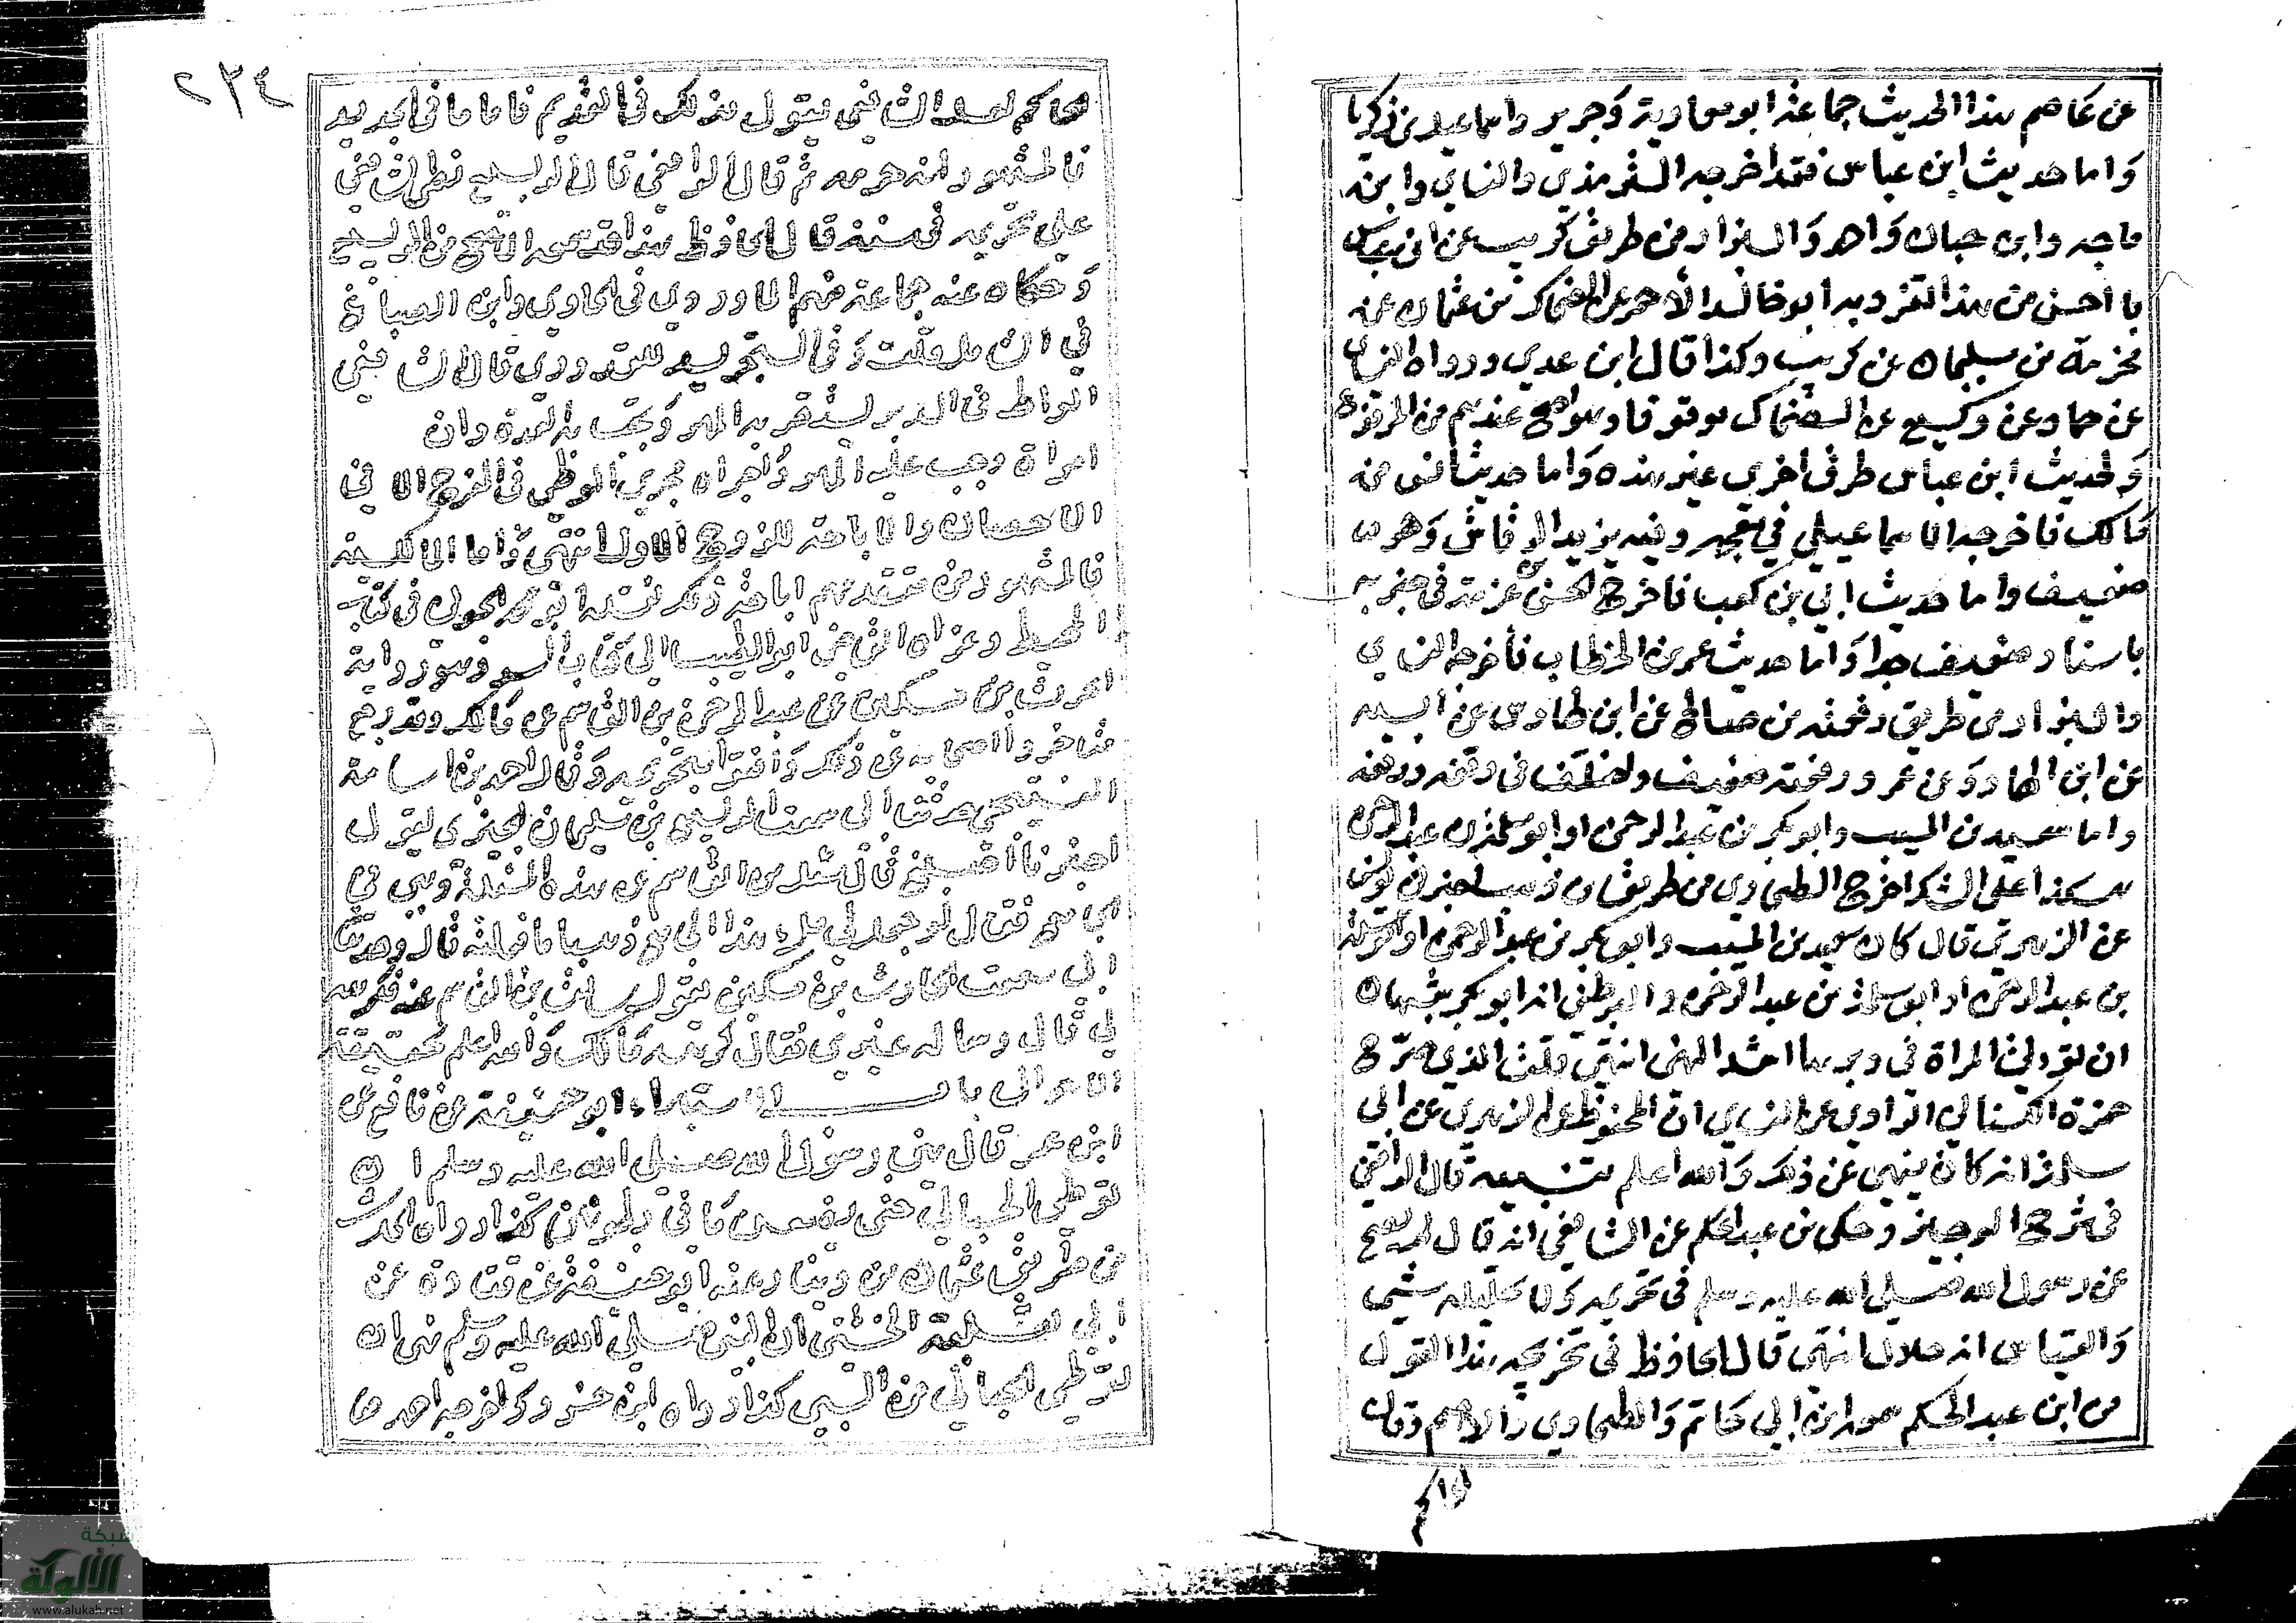 عن عاصم هذا الحديث جماعة ابو معاوية وجرير واسماعيل بن زكريا
واما حديث ابن عباس فقد اخرجه الترمذي والنساي وابن
ماجه وابن حبان واحمد والبزار من طريق كريب عن ابن عباس
با احسن من هذا تفرد به ابو خالد الأحمر عن الضحاك بن عثمان عن
مخرمة بن سليمان عن كريب وكذا قال ابن عدي ورواه النساي
عن هناد عن وكيع عن الضحاك موقوفا وهو اصح عندهم من المرفوع
ولحديث ابن عباس طرق أخرى غير هذه واما حديث انس بن
مالك فاخرجه الاسماعيلي في معجمه وفيه يزيد الرقاشي وهو
ضعيف واما حديث ابي بن كعب فاخرج الحسن بن عرفة في جزيه
باسناد ضعيف جدا واما حديث عمر بن الخطاب فأخرجه النساي
والبزار من طريق زمعة بن صالح عن ابن طاوس عن ابيه
عن ابن الهاد وعن عمر وزمعة ضعيف واختلف في وقفه ورفعه
واما سعيد بن المسيب وابو بكر بن عبد الرحمن او ابو سلمة بن عبد الرحمن
هكذا على الشك اخرج الطحاوي من طريق بن وهب اخبرني يونس
عن الزهري قال كان سعيد بن المسيب وابو بكر بن عبد الرحمن او ابو سلمة
بن عبد الرحمن او ابو سلمة بن عبد الرحمن واكبر ظني انه ابو بكر ينهيان
ان تؤتى المراة في دبرها اشد النهي انتهى قلت الذي صرح
حمزة الكناني الراوي عن النساي ان المحفوظ عن الزهري عن ابي
سلمة انه كان ينهى عن ذلك والله اعلم تنبيه قال الرافعي
في شرح الوجيز وحكى بن عبد الحكم عن الشافعي انه قال لم يصح
عن رسول الله صلى الله عليه وسلم في تحريمه ولا تحليله شيي
والقياس انه حلال انتهى قال الحافظ في تخريجه هذا القول
من ابن عبد الحكم ابن ابي حاتم والطحاوي والاصم وقال
الحاكم
٢٣٤
الحاكم لعل الشافعي يقول بذلك في القديم فاما ما في الجديد
فالمشهور انه حرمه ثم قال الرافعي قال الربيع نص الشافعي
على تحريمه في سنة قال الحافظ هذا قد سمعه الاصم من الربيع
وحكاه عنه جماعة منهم الماوردي في الحاوي وابن الصباغ
في الشامل قلت وفي التجريد للقدوري قال الشافعي
الواطي في الدبر يستقر به المهر وتجب به العدة وان
امراة وجب عليه المهر واجراه مجرى الوطي في الفرج الا في
الاحصان والاباحة للزوج الاول انتهى واما المالكية
فالمشهور من متقدمهم اباحة ذلك نقله ابو محمد الجويني في كتابه
المحيط وعزاه القاضي ابو الطيب الى كتاب السر وهو رواية
الحرث بن مسكين عن عبد الرحمن بن القاسم عن مالك وقد رجع
متاخروا اصحابه عن ذلك وافتوا بتحريمه وقال احمد بن اسامة
التجيبي حدثنا ابي سمعت الربيع بن سليمان الجيزي يقول
اخبرنا اصبغ قال سئل بن القاسم عن هذه المسئلة وهي في
الجامع فقال لو جعل لي ملء هذا الجامع ذهبا ما فعلته قال وحدثنا
ابي سمعت الحارث بن مسكين يقول سالت بن القاسم عنه فكرهه
لي قال وساله غيري فقال كرهه مالك والله اعلم بحقيقة
الاحوال باب الاستبراء ابو حنيفة عن نافع عن
ابن عمر قال نهى رسول الله صلى الله عليه وسلم ان
توطى الحبالى حتى يضعن ما في بطونهن كذا رواه الحرث
من طريق عثمان بن دينار عنه ابو حنيفة عن قتادة عن
ابي ثعلبة الخشني ان النبي صلى الله عليه وسلم نهى ان
توطي الحبالى من السبي كذا رواه ابن خسرو كما اخرجه احمد
شبكة
الألوكة
www.alukah.net